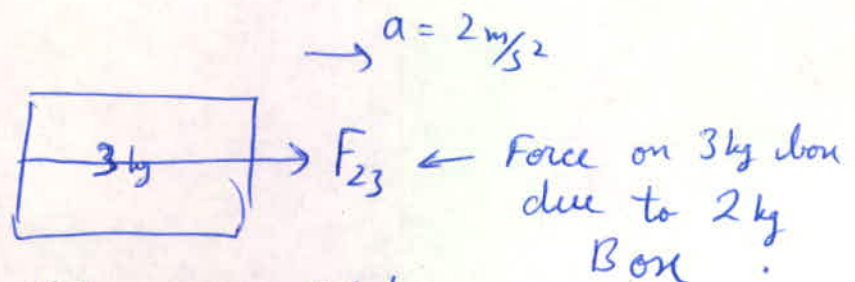 a = 2 m/s²
3 kg
F₂₃ ← Force on 3 kg box
due to 2 kg
Box .